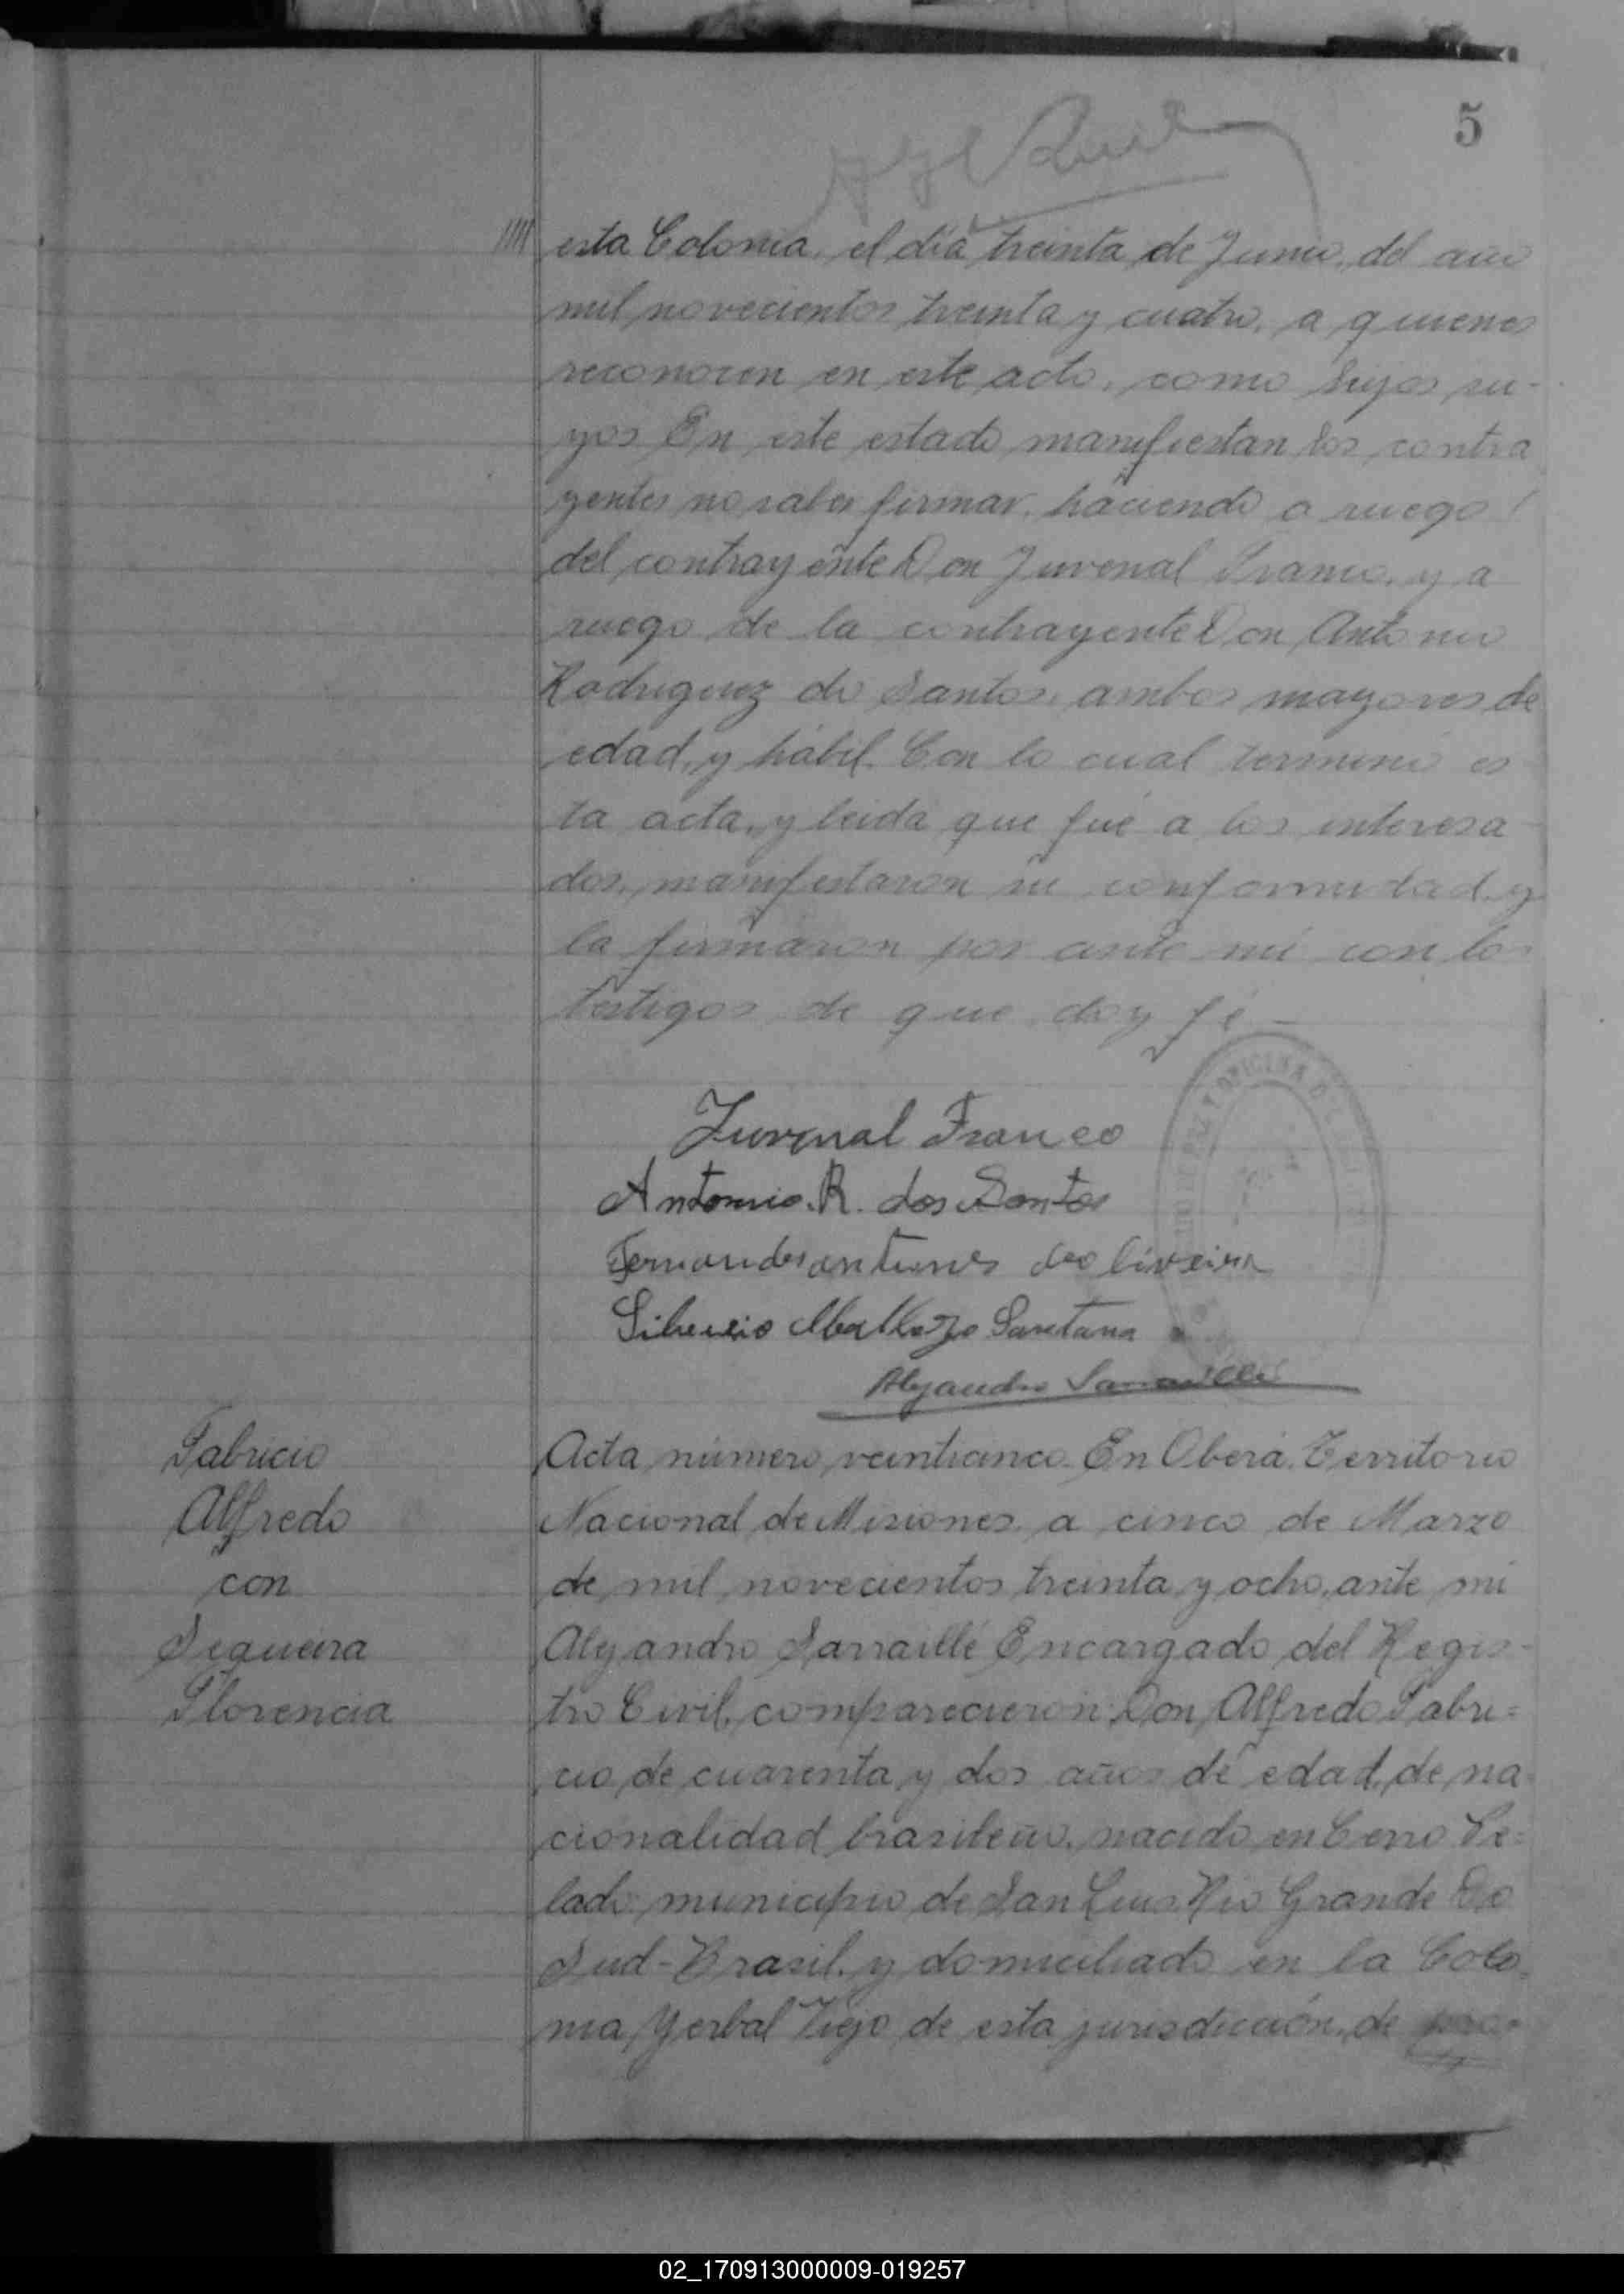 5
esta Colonia, el día treinta de Junio, del año
mil novecientos treinta y cuatro, a quienes
reconocen en este acto, como hijos su-
yos En este estado manifiestan los contra
yentes no saber firmar, haciendo a ruego
del contrayente Don Juvenal Franco, y a
ruego de la contrayente Don Antonio
Rodriguez do Santos, ambos mayores de
edad, y hábil. Con lo cual terminó es
ta acta, y leida que fué a los interesa-
dos, manifestaron su conformidad y
la firmaron por ante mí con los
testigos de que doy fé-
Juvenal Franco
Antonio. R. dos Santos
Fernandes antunes de oliveira
Santana
Alejandro Sarraillé
Fabricio
Alfredo
con
Sequeira
Florencia
Acta número veinticinco. En Oberá, Territorio
Nacional de Misiones, a cinco de Marzo
de mil novecientos treinta y ocho, ante mi
Alejandro Sarraillé Encargado del Regis-
tro Civil, comparecieron: Don Alfredo Fabri=
cio de cuarenta y dos años de edad, de na=
cionalidad brasileño, nacido en Cerro Pe=
lado municipio de San Luis Rio Grande Do
Sud-Brasil, y domiciliado en la Colo=
nia Yerbal Viejo de esta jurisdicción, de
02_170913000009-019257